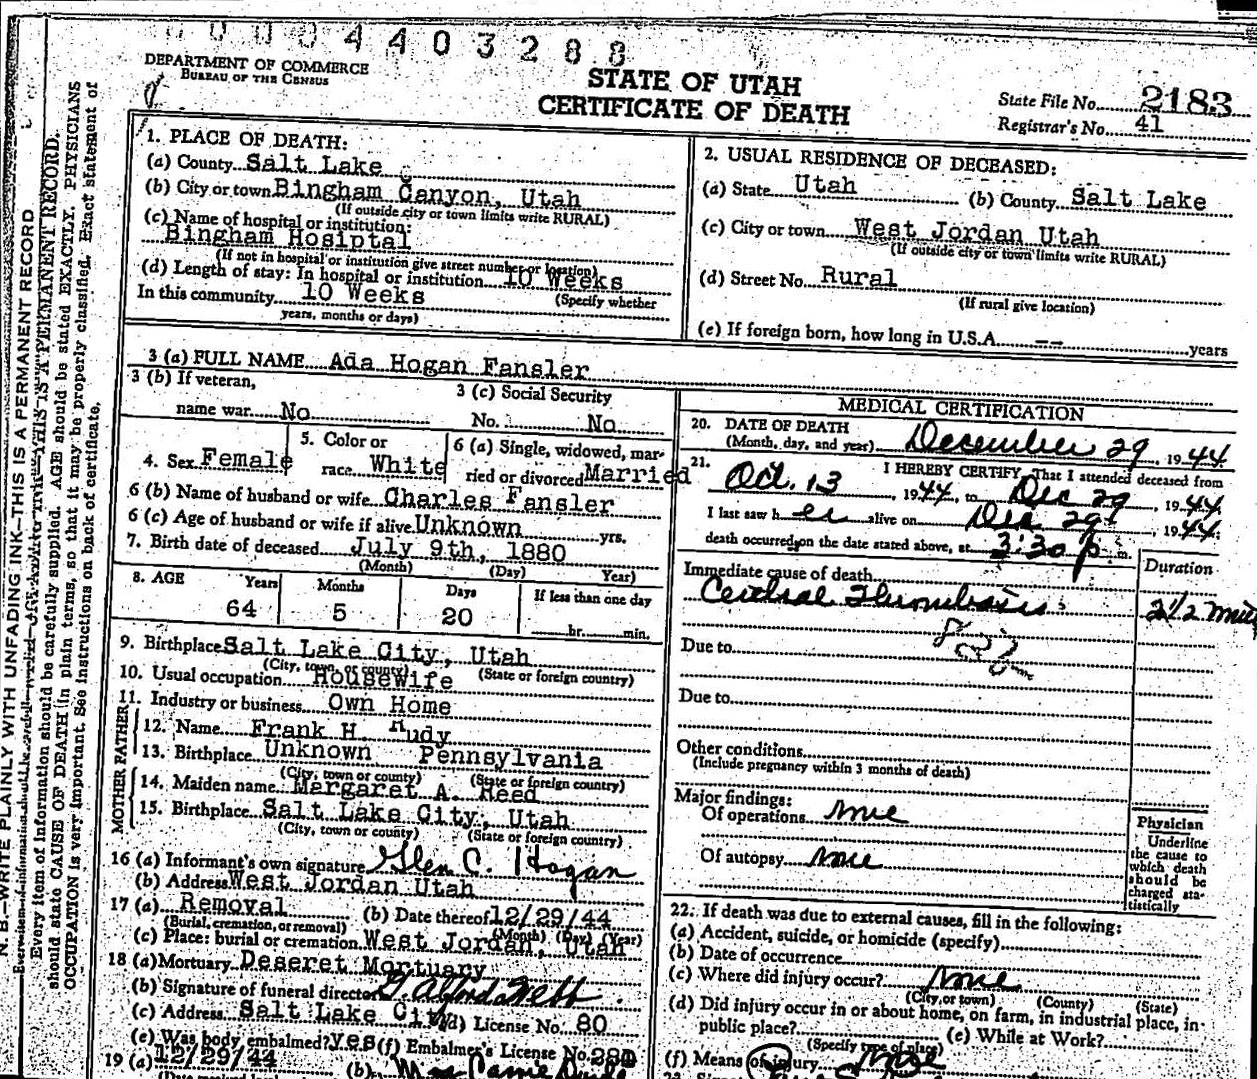 0004403288
DEPARTMENT OF COMMERCE
BUREAU OF THE CENSUS
STATE OF UTAH
CERTIFICATE OF DEATH
State File No. 2183
Registrar's No. 41
N. B.—WRITE PLAINLY WITH UNFADING INK—THIS IS A PERMANENT RECORD
Every item of information should be carefully supplied. AGE should be stated EXACTLY. PHYSICIANS
should state CAUSE OF DEATH in plain terms, so that it may be properly classified. Exact statement of
OCCUPATION is very important. See instructions on back of certificate.
1. PLACE OF DEATH:
(a) County Salt Lake
(b) City or town Bingham Canyon, Utah
(If outside city or town limits write RURAL)
(c) Name of hospital or institution:
Bingham Hosiptal
(If not in hospital or institution give street number or location)
(d) Length of stay: In hospital or institution 10 Weeks
In this community 10 Weeks (Specify whether
years, months or days)
2. USUAL RESIDENCE OF DECEASED:
(a) State Utah (b) County Salt Lake
(c) City or town West Jordan Utah
(If outside city or town limits write RURAL)
(d) Street No. Rural
(If rural give location)
(e) If foreign born, how long in U.S.A. -- years
3 (a) FULL NAME Ada Hogan Fansler
3 (b) If veteran,
name war No
3 (c) Social Security
No. No
4. Sex Female
5. Color or
race White
6 (a) Single, widowed, mar-
ried or divorced Married
6 (b) Name of husband or wife Charles Fansler
6 (c) Age of husband or wife if alive Unknown yrs.
7. Birth date of deceased July 9th, 1880
(Month) (Day) Year)
8. AGE Years Months Days If less than one day
64 5 20 hr. min.
9. Birthplace Salt Lake City, Utah
(City, town, or county) (State or foreign country)
10. Usual occupation Housewife
11. Industry or business Own Home
FATHER
12. Name Frank H. Rudy
13. Birthplace Unknown Pennsylvania
(City, town or county) (State or foreign country)
MOTHER
14. Maiden name Margaret A. Reed
15. Birthplace Salt Lake City, Utah
(City, town, or county) (State or foreign country)
16 (a) Informant's own signature Glen C. Hogan
(b) Address West Jordan Utah
17 (a) Removal (b) Date thereof 12/29/44
(Burial, cremation, or removal) (Month) (Day) (Year)
(c) Place: burial or cremation West Jordan, Utah
18 (a) Mortuary Deseret Mortuary
(b) Signature of funeral director Webb
(c) Address Salt Lake City (d) License No. 80
(e) Was body embalmed? yes (f) Embalmer's License No.
19 (a) 12/29/44 (b) Mrs
MEDICAL CERTIFICATION
20. DATE OF DEATH
(Month, day, and year) December 29, 1944.
21. I HEREBY CERTIFY, That I attended deceased from
Oct. 13, 1944, to Dec 29, 1944.
I last saw her alive on Dec 29, 1944.
death occurred on the date stated above, at 3:30 p m.
Duration
Immediate cause of death
Cerebral Thrombosis 2 1/2
Due to
Due to
Other conditions
(Include pregnancy within 3 months of death)
Major findings:
Of operations none
Of autopsy none
Physician
Underline
the cause to
which death
should be
charged sta-
tistically
22. If death was due to external causes, fill in the following:
(a) Accident, suicide, or homicide (specify)
(b) Date of occurrence
(c) Where did injury occur? none
(City or town) (County) (State)
(d) Did injury occur in or about home, on farm, in industrial place, in
public place? (e) While at Work?
(Specify type of place)
(f) Means of injury none